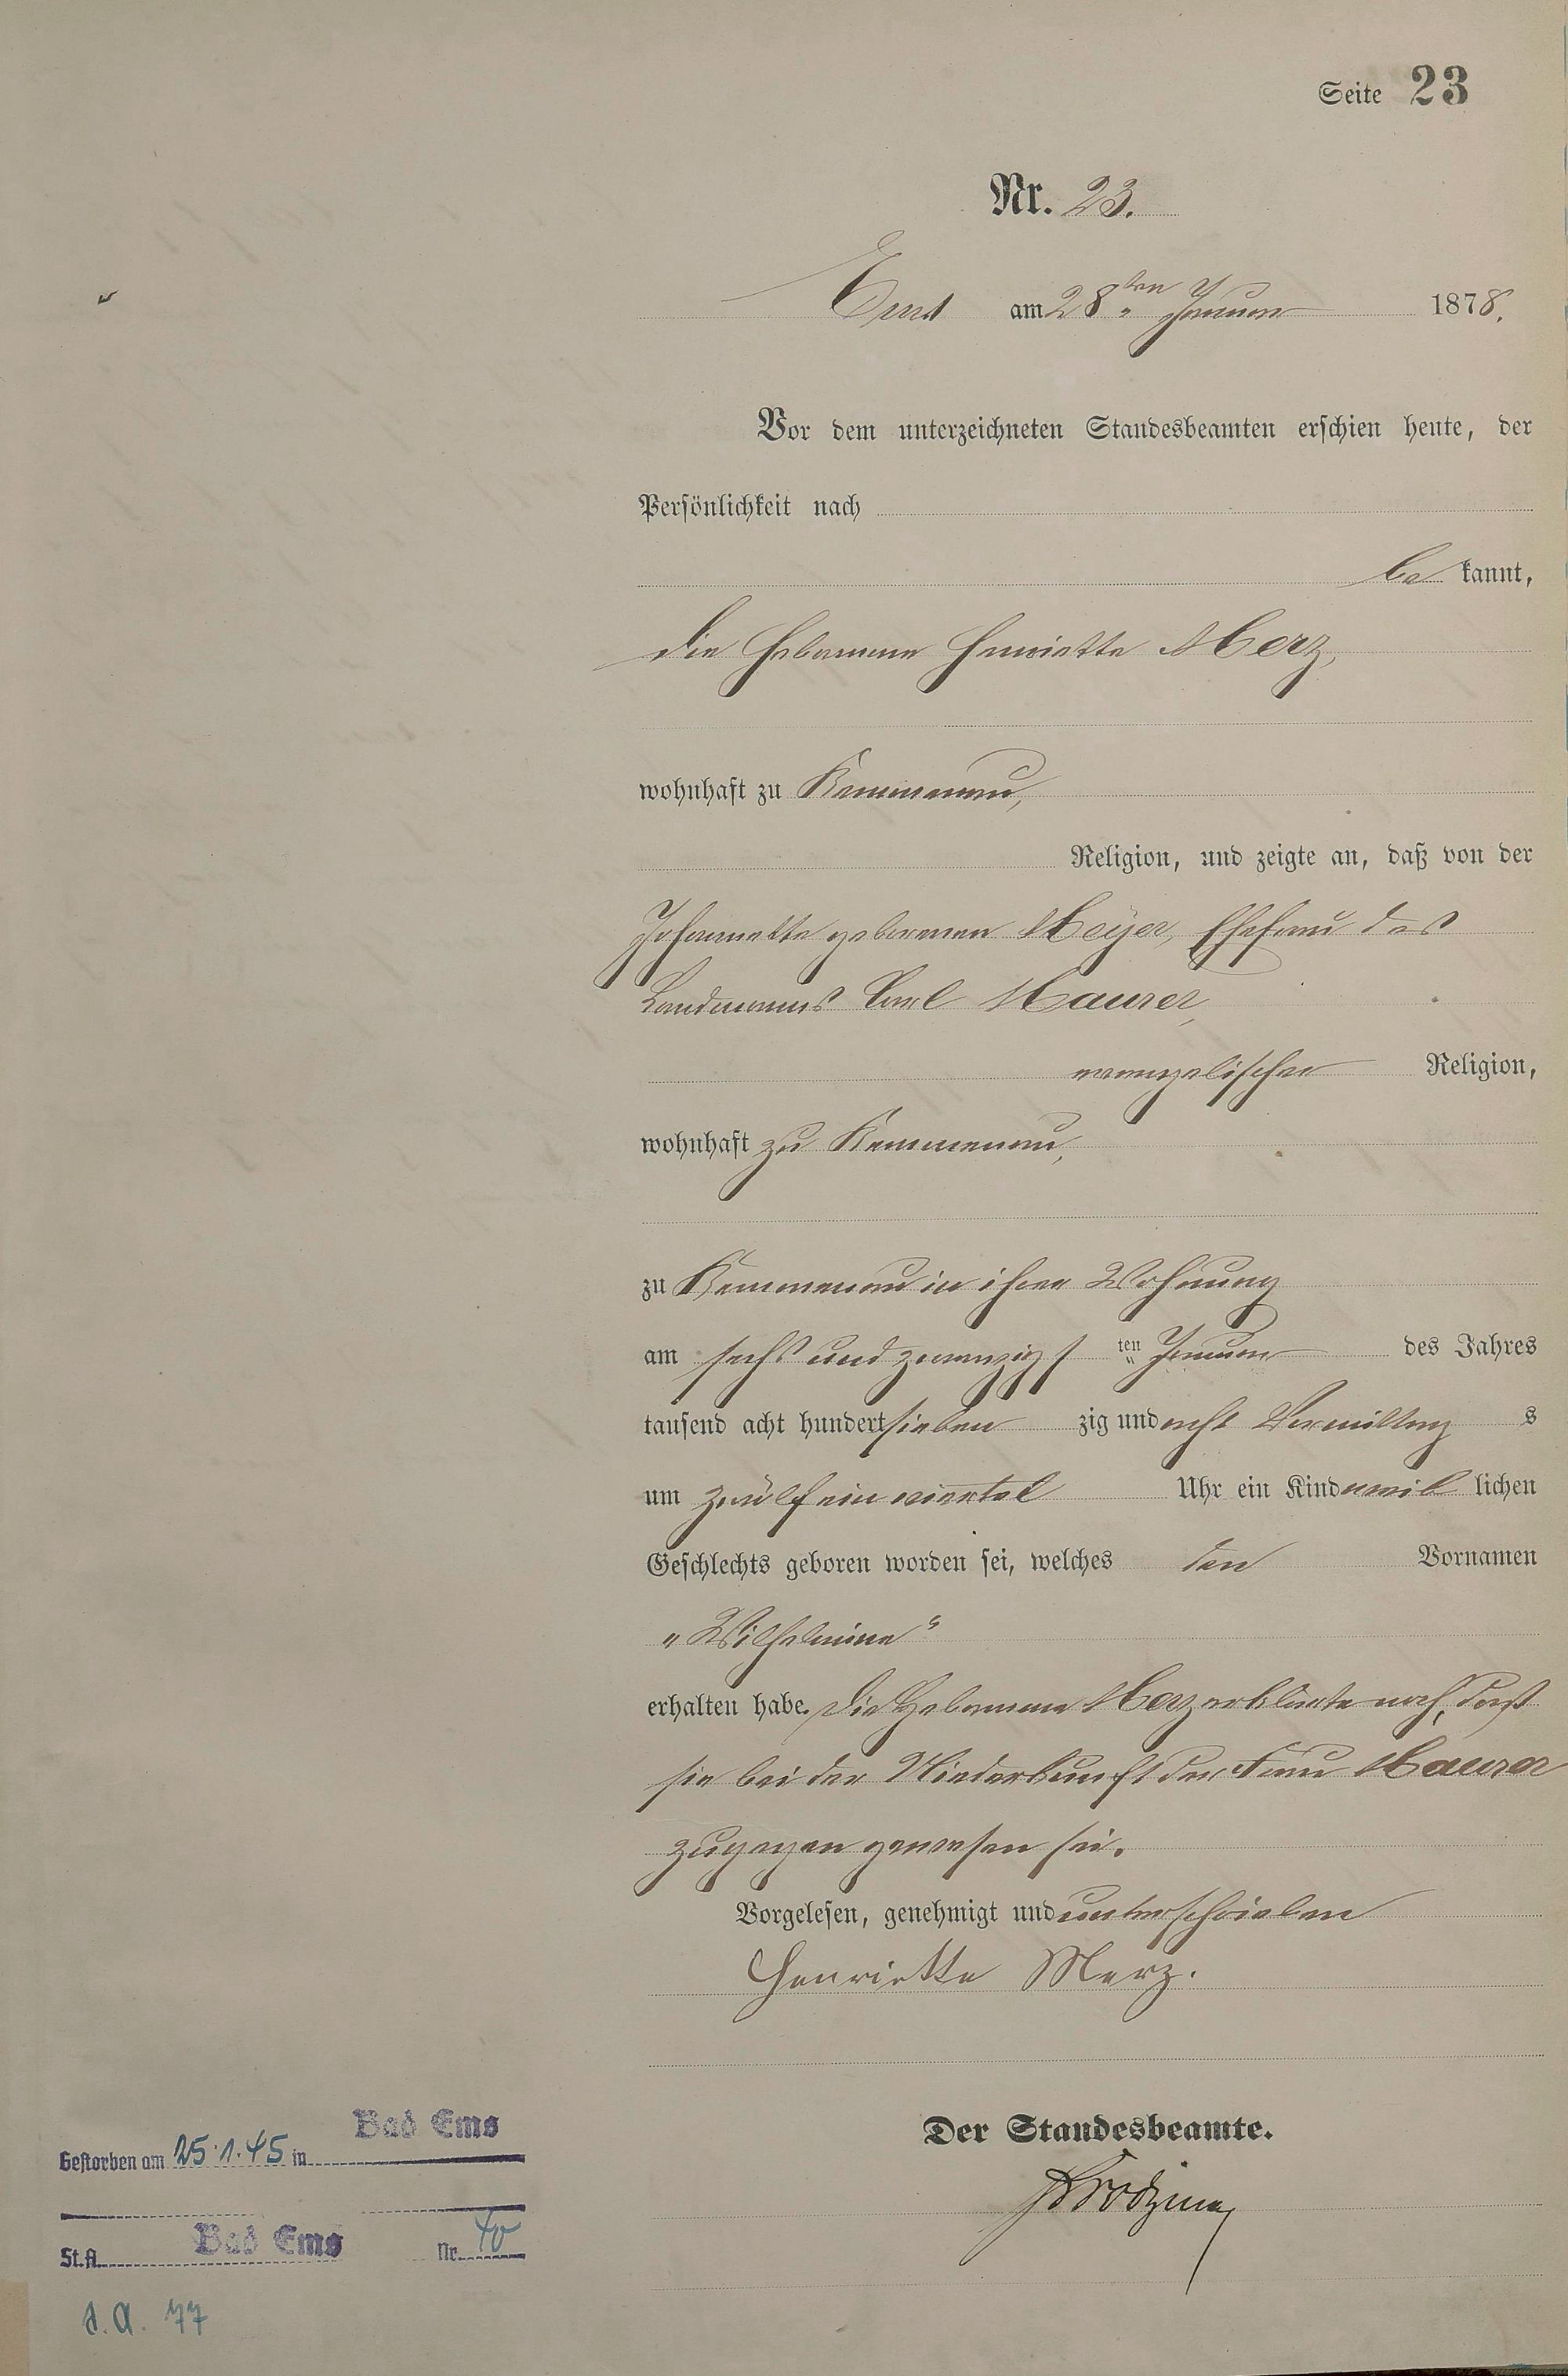 Seite 23
Nr. 23.
Ems am 28ten Januar 1878.
Vor dem unterzeichneten Standesbeamten erschien heute, der
Persönlichkeit nach
be kannt,
die Hebamme Henriette Merz,
wohnhaft zu Kemmenau,
Religion, und zeigte an, daß von der
Johannette geborenen Meyer, Ehefrau des
Landmanns Carl Maurer,
evangelischer Religion,
wohnhaft zu Kemmenau,
zu Kemmenau in ihrer Wohnung
am sechs und zwanzigs ten Januar des Jahres
tausend acht hundert sieben zig und acht Vormittag s
um zwölf ein viertel Uhr ein Kind weib lichen
Geschlechts geboren worden sei, welches den Vornamen
„Wilhelmine“
erhalten habe. Die Hebamme Merz erklärte noch, daß
sie bei der Niederkunft der Frau Maurer
zugegen gewesen sei.
Vorgelesen, genehmigt und unterschrieben
Henriette Merz.
Der Standesbeamte.
Gestorben am 25.1.45 in Bad Ems
St.A. Bad Ems Nr.
S.A. 77